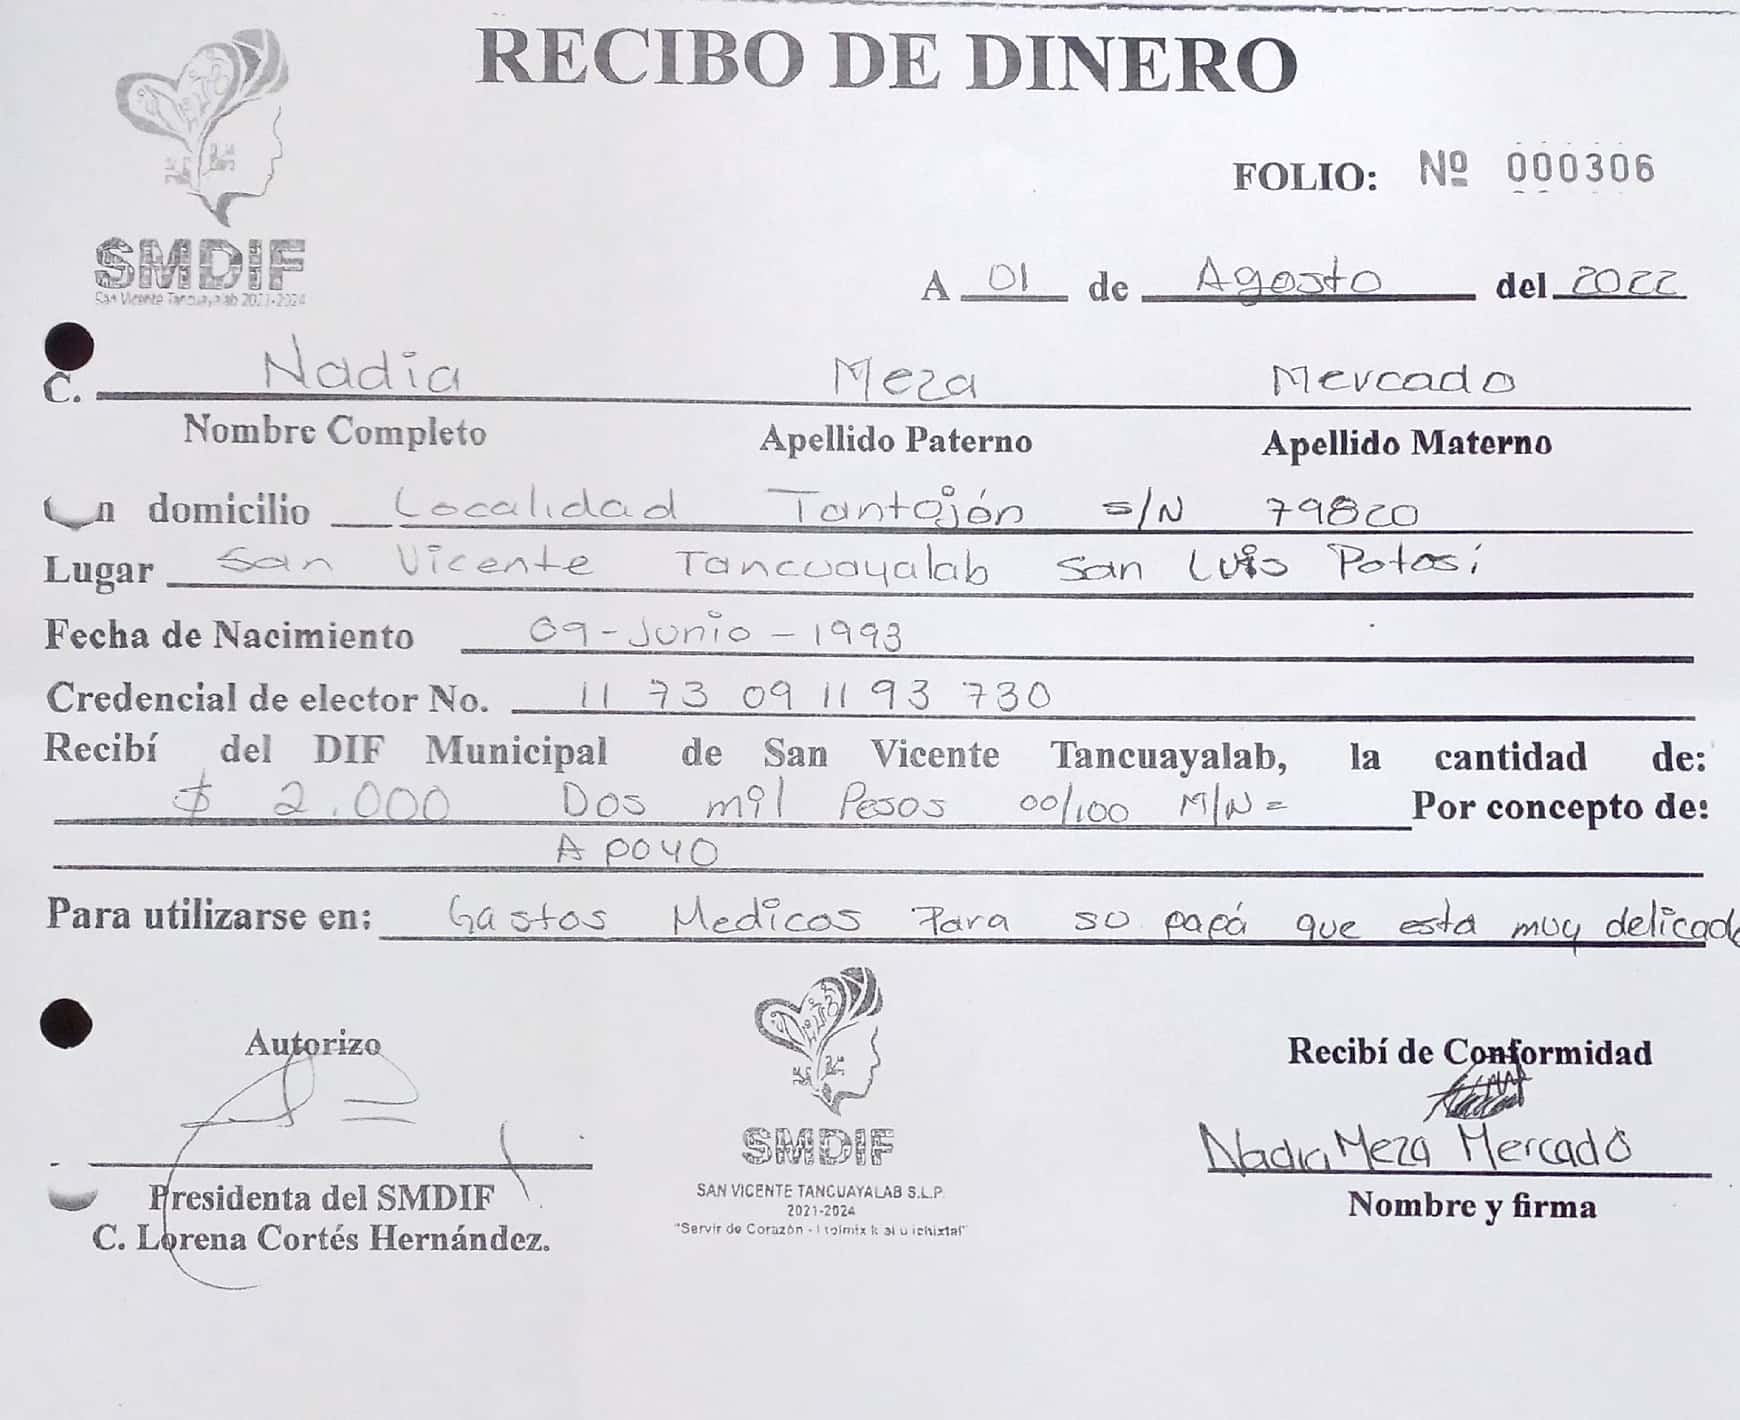 RECIBO DE DINERO
FOLIO: Nº 000306
SMDIF
San Vicente Tancuayalab 2021-2024
A 01 de Agosto del 2022
C. Nadia Meza Mercado
Nombre Completo Apellido Paterno Apellido Materno
n domicilio Localidad Tantojón S/N 79820
Lugar San Vicente Tancuayalab San Luis Potosí
Fecha de Nacimiento 09-Junio-1993
Credencial de elector No. 11 73 09 11 93 730
Recibí del DIF Municipal de San Vicente Tancuayalab, la cantidad de:
$ 2.000 Dos mil Pesos 00/100 M/N= Por concepto de:
Apoyo
Para utilizarse en: Gastos Medicos Para su papá que esta muy delicado
Autorizo
Recibí de Conformidad
SMDIF
Nadia Meza Mercado
SAN VICENTE TANCUAYALAB S.L.P.
2021-2024
"Servir de Corazón -
Presidenta del SMDIF
Nombre y firma
C. Lorena Cortés Hernández.